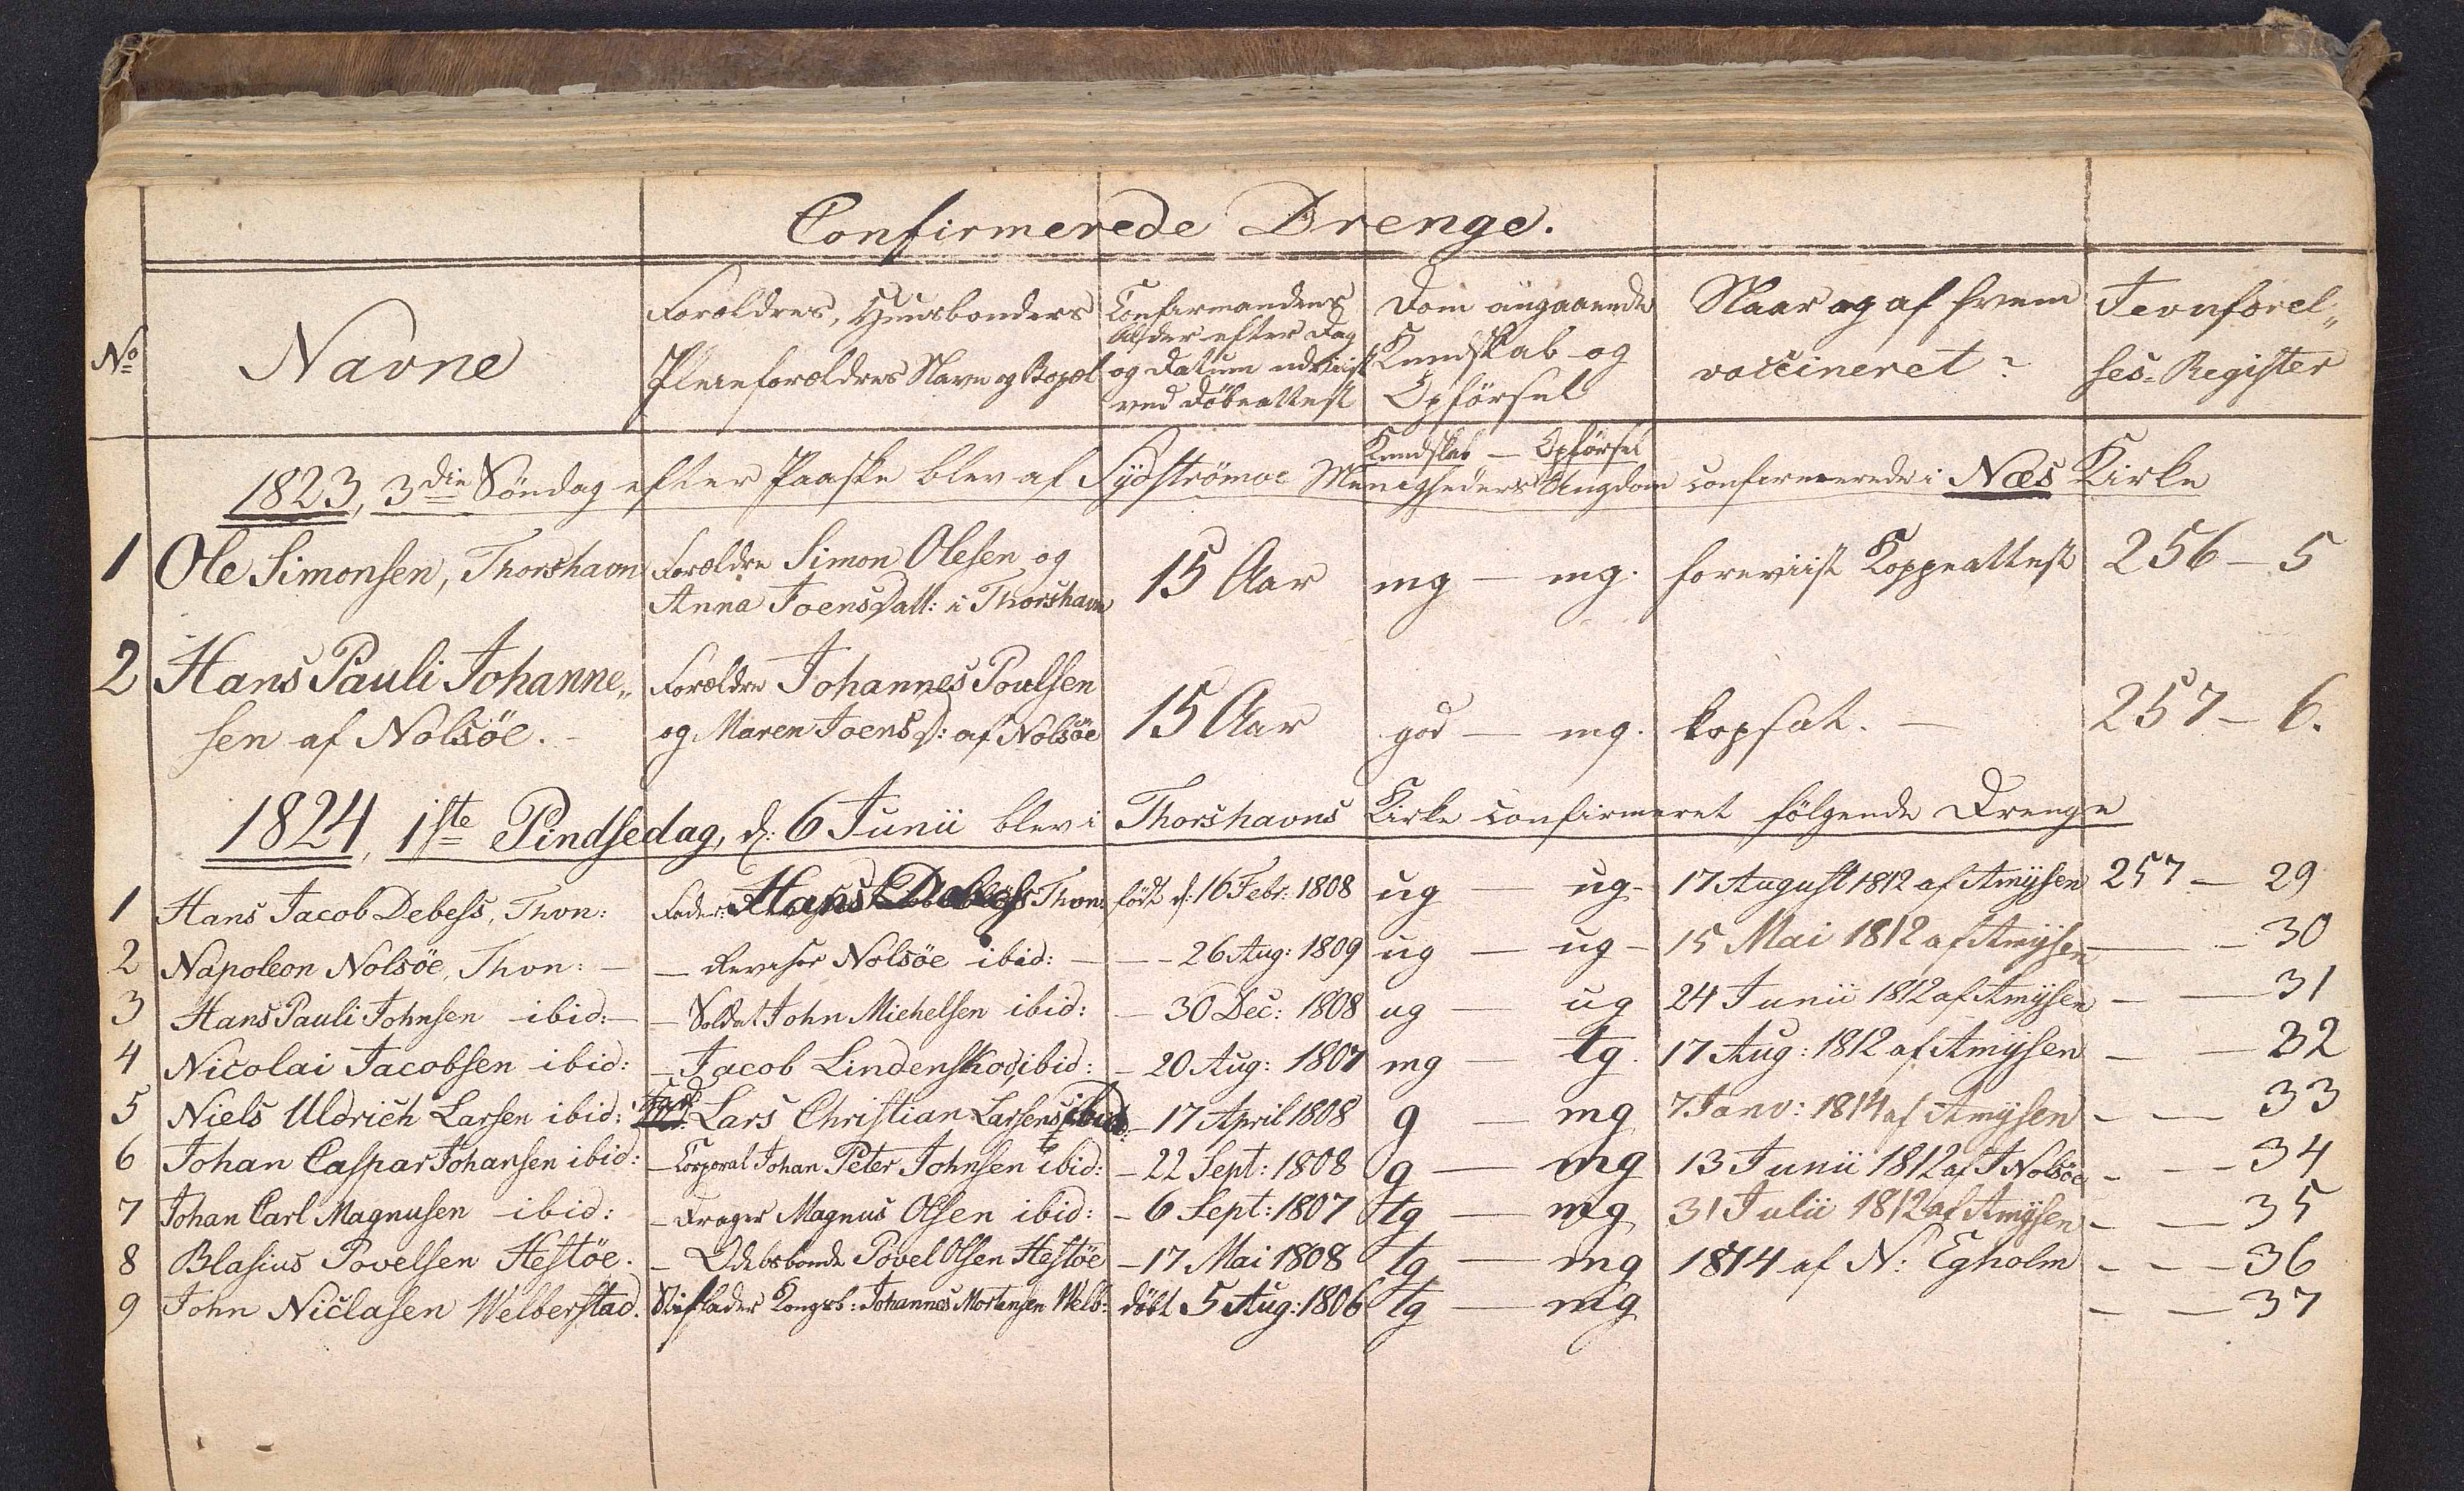 Confirmerede Drenge.
No Navne Forældres, Huusbonders Plejeforældres Navn og Bopæl Confirmandens Alder efter Dag og Datum udviist ved Döbeattest Dom angaaende Kundskab og Opförsel Naar og af hvem vaccineret? Jevnförel„ ses-Register
Kundskab — Opförsel
1823, 3die Söndag efter Paaske blev af Sydströmoe Menigheders Ungdom confirmerede i Næs Kirke
1 Ole Simonsen, Thorshavn Forældre Simon Olesen og 15 Aar mg — mg. foreviist Koppeattest 256 — 5
Anna Joensdatt: i Thorshavn
2 Hans Pauli Johanne„ Forældre Johannes Poulsen
sen af Nolsöe. og Maren Joens D: af Nolsöe 15 Aar god — mg. kopsat. — 257 — 6.
1824, 1ste Pindsedag, d: 6 Junii blev i Thorshavns Kirke confirmeret fölgende Drenge
1 Hans Jacob Debess, Thvn: Fader: Hans Debess Thvn: födt d: 16 Febr: 1808 ug — ug - 17 August 1812 af Amÿsen 257 — 29
2 Napoleon Nolsöe, Thvn: — Revisor Nolsöe ibid: — - 26 Aug: 1809 ug — ug - 15 Mai 1812 af Amÿsen — 30
3 Hans Pauli Johnsen ibid: — Soldat John Michelsen ibid: — 30 Dec: 1808 ug — ug 24 Junii 1812 af Amÿsen — — 31
4 Nicolai Jacobsen ibid: — Jacob Lindenskov, ibid: — 20 Aug: 1807 mg — tg. 17 Aug: 1812 af Amÿsen — — 32
5 Niels Uldrich Larsen ibid: Lars Christian Larsens ibid: — 17 April 1808 g — mg 7 Janv: 1814 af Amÿsen — — 33
6 Johan Caspar Johansen ibid: — Corporal Johan Peter Johnsen ibid: — 22 Sept: 1808 g — mg 13 Junii 1812 af J Nolsöe — — 34
7 Johan Carl Magnusen ibid: — Drager Magnus Olsen ibid: — 6 Sept: 1807 tg — mg 31 Julii 1812 af Amÿsen — — 35
8 Blasius Povelsen Hestöe. — Odelsbonde Povel Olsen Hestöe — 17 Mai 1808 tg — mg 1814 af N: Egholm — — 36
9 John Niclasen Welberstad. Stiffader Kongsb: Johannes Mortensen Welb: döbt 5 Aug: 1806 tg — mg — — 37